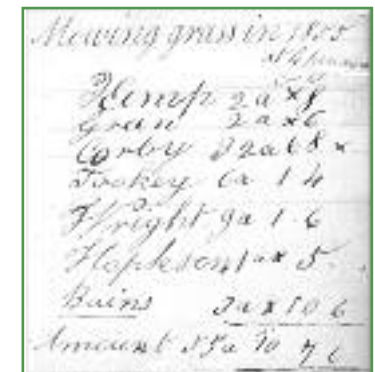 Mowing grass in 1855
Hemp 2a x 8
Green 2a x 6
Corby 32a 6 8 x
Tookey 6a 1 4
Wright 9a 1 6
Hopkeson 1a x 5
Bains 3a x 10 6
Amount 55a 10 7 6